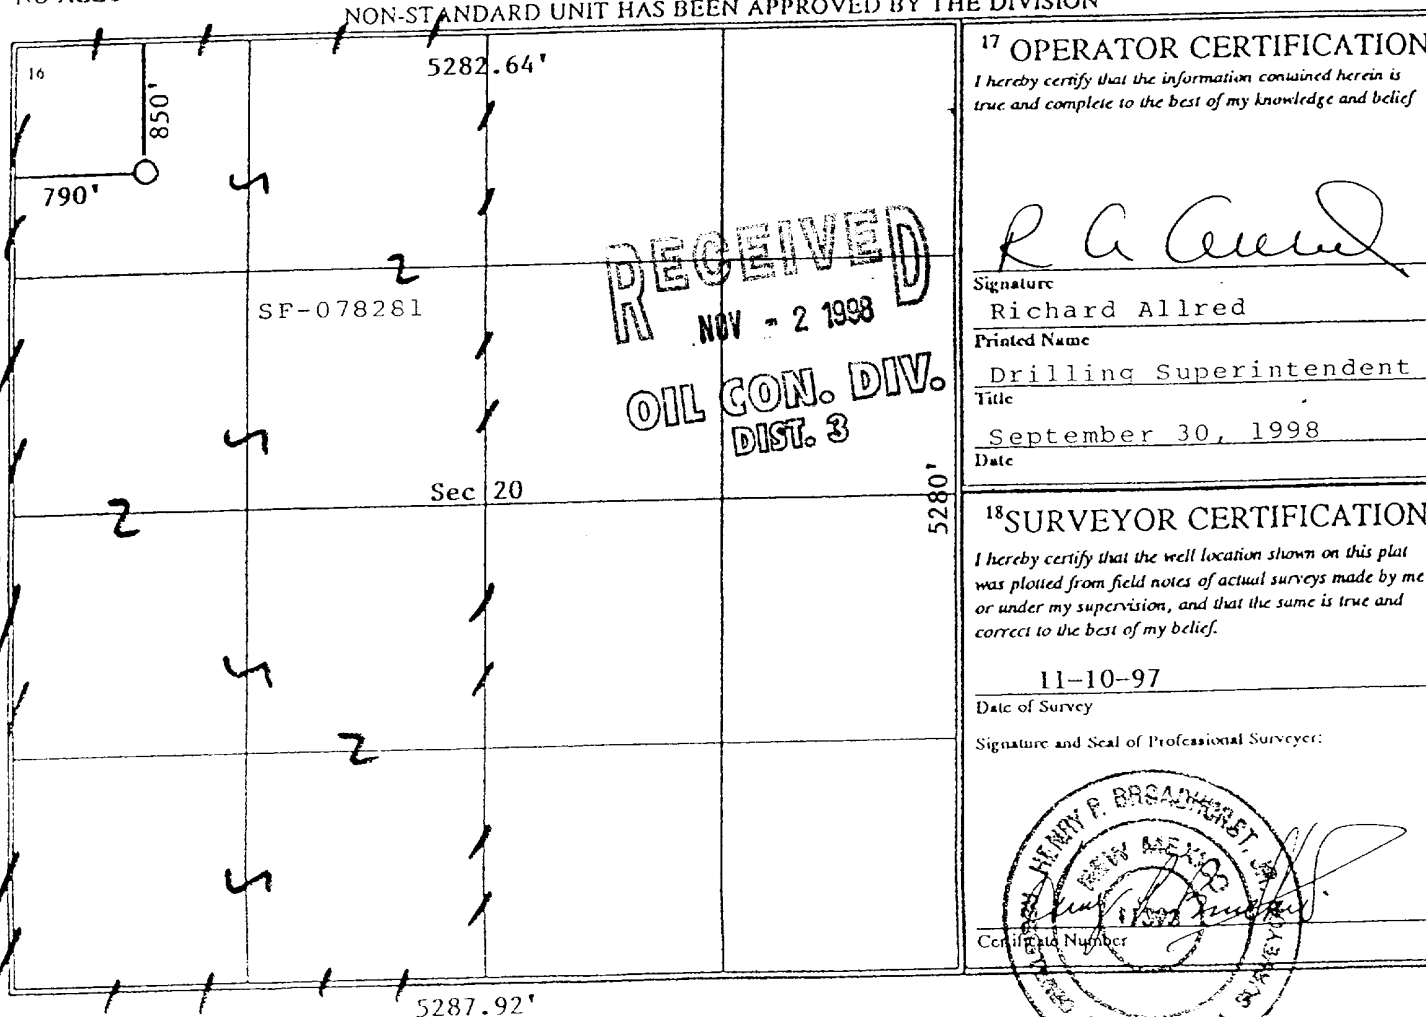 NON-STANDARD UNIT HAS BEEN APPROVED BY THE DIVISION
16
850'
790'
5282.64'
SF-078281
Sec 20
5280'
5287.92'
RECEIVED
NOV - 2 1998
OIL CON. DIV.
DIST. 3
17 OPERATOR CERTIFICATION
I hereby certify that the information contained herein is
true and complete to the best of my knowledge and belief
Signature
Richard Allred
Printed Name
Drilling Superintendent
Title
September 30, 1998
Date
18 SURVEYOR CERTIFICATION
I hereby certify that the well location shown on this plat
was plotted from field notes of actual surveys made by me
or under my supervision, and that the same is true and
correct to the best of my belief.
11-10-97
Date of Survey
Signature and Seal of Professional Surveyer:
HENRY P. BROADHURST, JR.
NEW MEXICO
Certificate Number